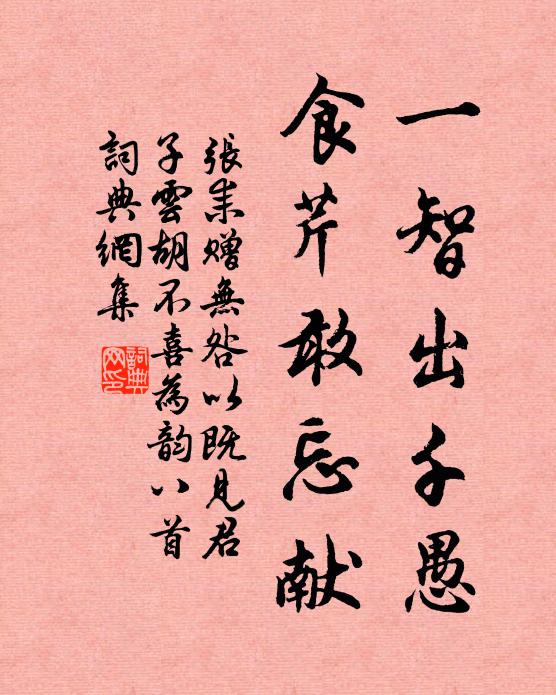 一智出千愚
食芹敢忘献
張耒贈無咎以既見君
子雲胡不喜為韵八首
詞典網集
詞典網印